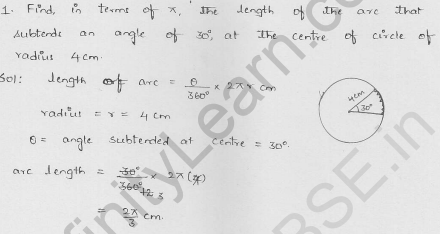 1. Find, in terms of π, the length of the arc that
subtends an angle of 30°, at the centre of circle of
radius 4cm.
Sol: length of arc = θ/360° × 2πr cm
radius = r = 4 cm
θ = angle subtended at centre = 30°.
4cm
30°
arc length = 30°/360° × 2π(4)
12 3
= 2π/3 cm.
InfinityLearn.com
BSE.in